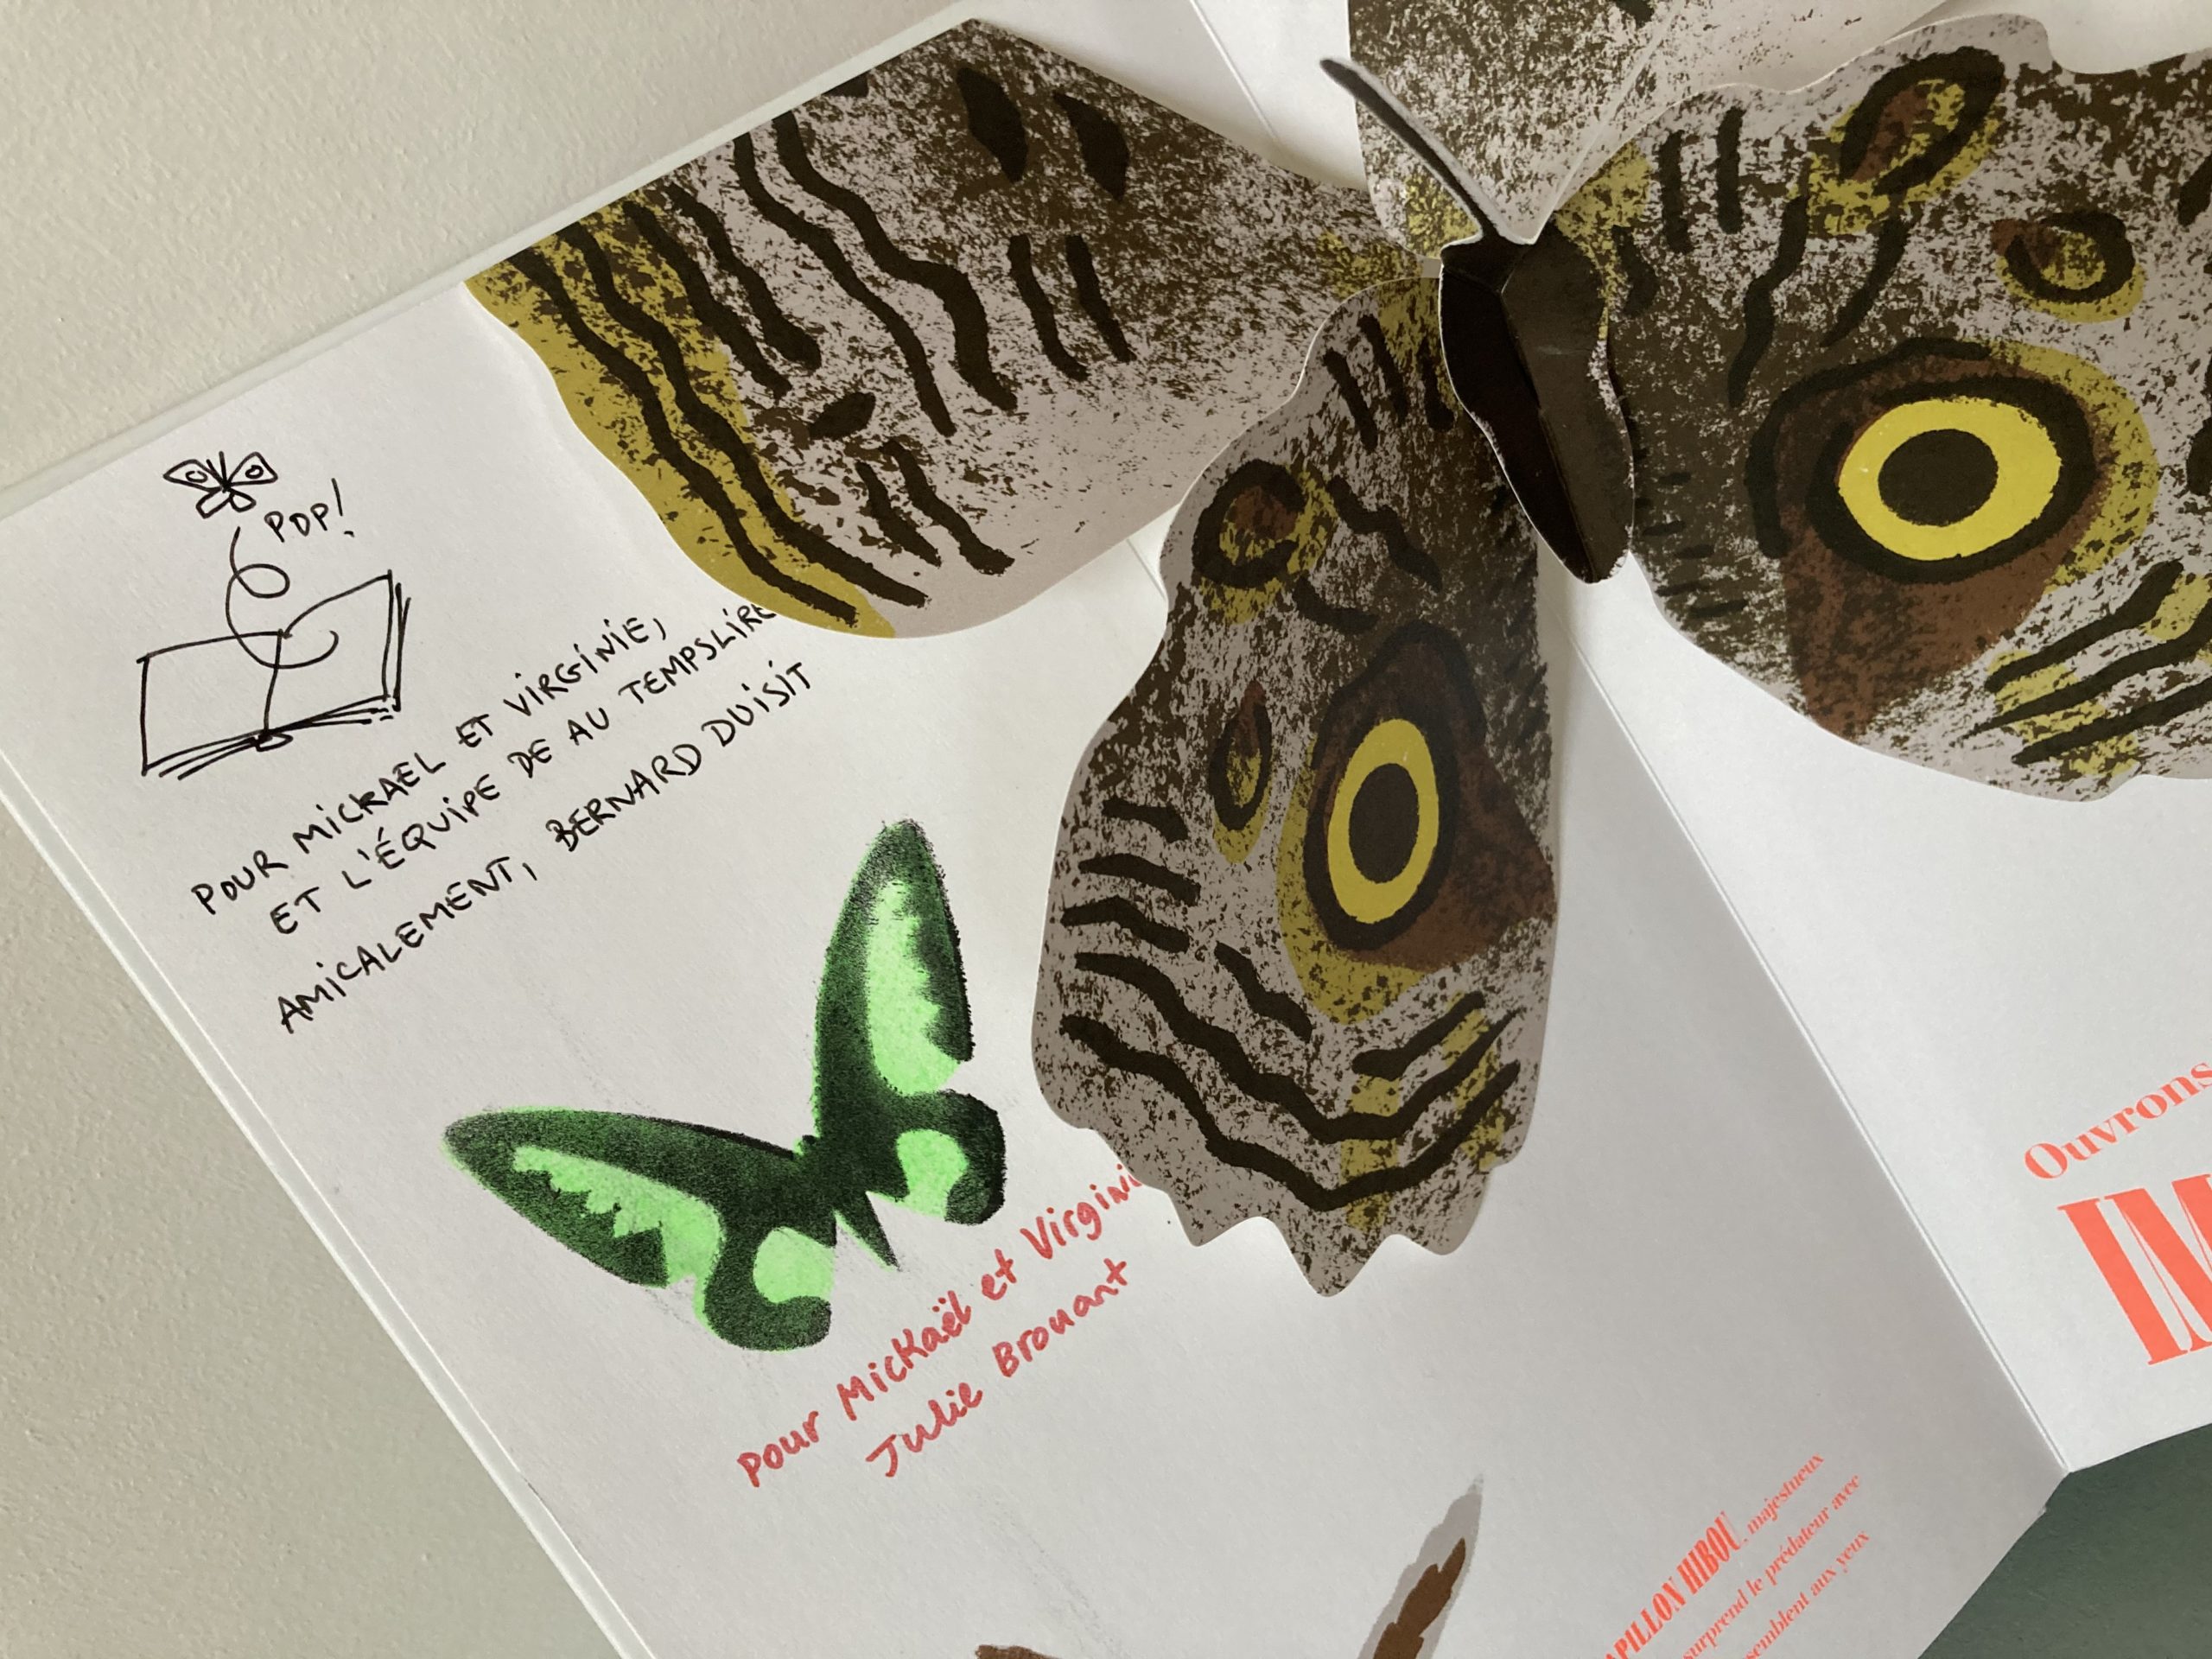 POP!
POUR MICKAEL ET VIRGINIE,
ET L'ÉQUIPE DE AU TEMPSLIRE
AMICALEMENT, BERNARD DUISIT
pour Mickaël et Virginie
Julie Brouant
PAPILLON HIBOU, majestueux
surprend le prédateur avec
semblent aux yeux
Ouvrons